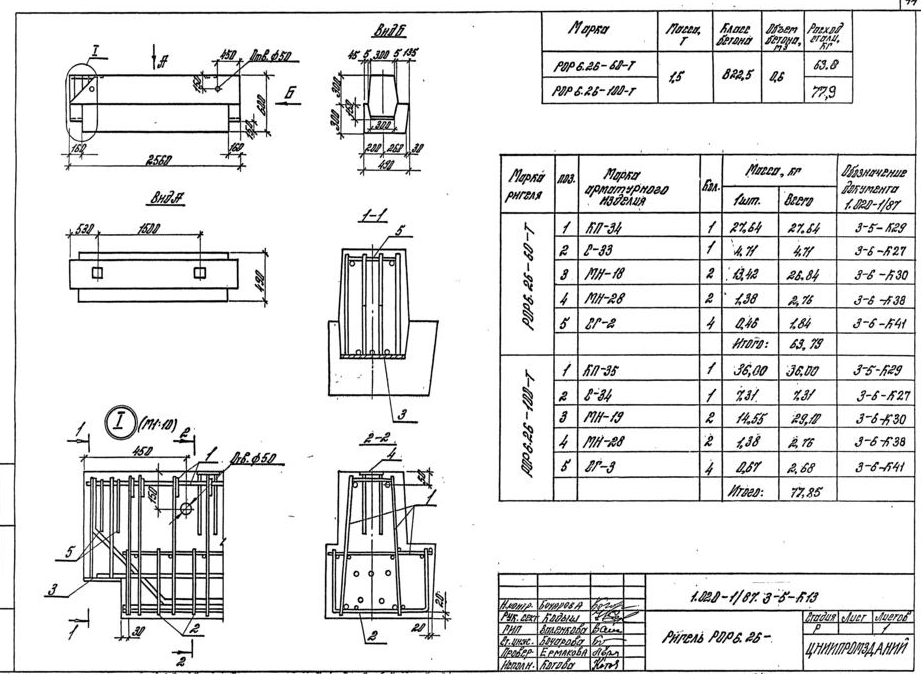 I
А
450
Отв. ф50
150
600
Б
150
160
160
2560
Вид Б
45 5 300 5 135
300
150
300
300
200 260 30
490
Вид А
530 1500
490
1-1
5
3
I (М1:10)
1
2
1
Отв. ф50
450
150
5
3
1
30
2
2
2-2
4
50
1
20
20
2
Марка Масса, т Класс бетона Объем бетона, м3 Расход стали, кг
РОР6.26-60-Т 1,5 В22,5 0,6 63.8
РОР6.26-100-Т 77,9
Марка ригеля поз. Марка арматурного изделия Кол. Масса, кг Обозначение документа 1.020-1/87
1шт. Всего
РОР6.26-60-Т
1 КП-34 1 27.64 27.64 3-5-К29
2 С-33 1 4.71 4.71 3-6-К27
3 МН-18 2 13,42 26.84 3-6-К30
4 МН-28 2 1,38 2,76 3-6-К38
5 СГ-2 4 0,46 1,84 3-6-К41
Итого: 63,79
РОР6.26-100-Т
1 КП-35 1 36,00 36,00 3-5-К29
2 С-34 1 7.31 7.31 3-6-К27
3 МН-19 2 14,55 29,10 3-6-К30
4 МН-28 2 1,38 2,76 3-6-К38
5 СГ-3 4 0,67 2,68 3-6-К41
Итого: 77,85
1.020-1/87. 3-5-К13
Н.контр. Бочарова
Рук. сект
РИП
Ст. инж. Бочарова
Провер. Ермакова
Исполн. Котова
Ригель РОР6.26-
Стадия Лист Листов
Р 1
ЦНИИПРОМЗДАНИЙ